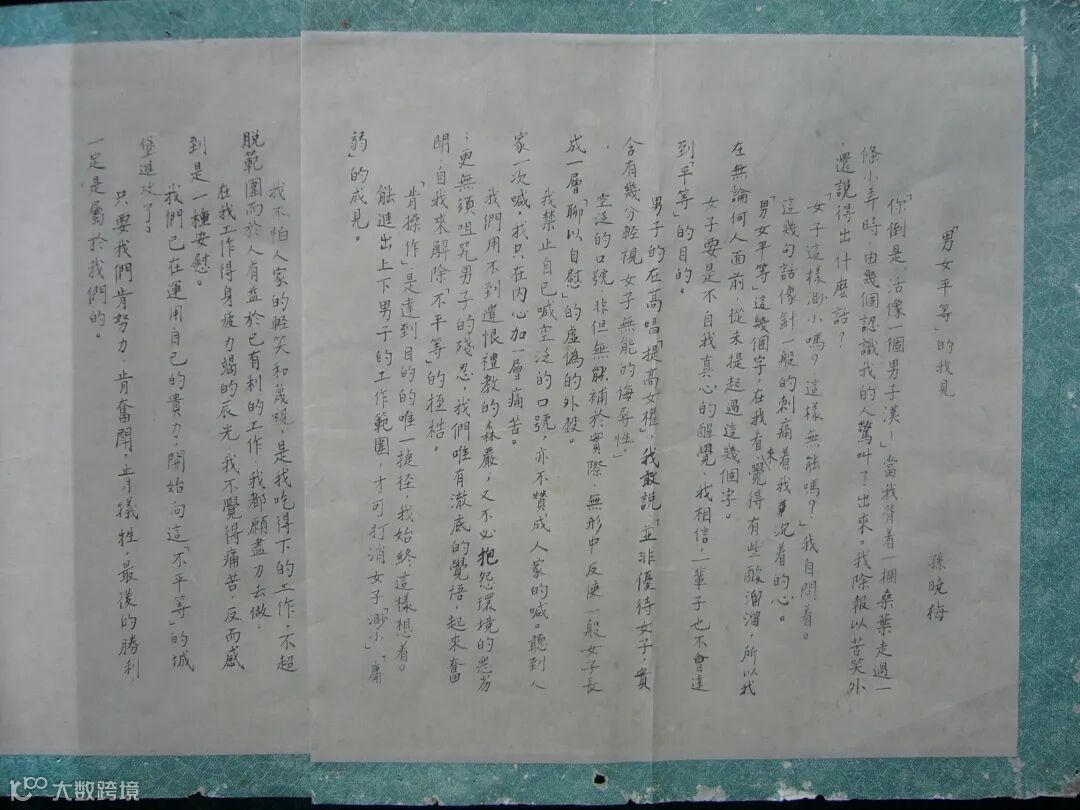 「男女平等」的我見
孫曉梅
「你倒是活像一個男子漢！」當我背着一捆桑葉走過一
條小弄時，由幾個認識我的人驚叫了出來。我除報以苦笑外
，還說得出什麼話？
「女子這樣渺小嗎？這樣無能嗎？」我自問着。
這幾句話像針一般的刺痛着我沉着的心。
「男女平等」這幾個字，在我看來，覺得有些酸溜溜，所以我
在無論何人面前，從未提起過這幾個字。
女子要是不自我真心的醒覺，我相信，一輩子也不會達
到「平等」的目的。
男子的在高唱「提高女權」，我敢說「並非優待女子，實
含有幾分輕視女子無能的侮辱性。」
空泛的口號，非但無能補於實際，無形中反使一般女子長
成一層「聊以自慰」的虛偽的外殼。
我禁止自己喊空泛的口號，亦不贊成人家的喊。聽到人
家一次喊，我只在內心加一層痛苦。
我們用不到遺恨禮教的森嚴，又不必抱怨環境的惡劣
，更無須咀咒男子的殘忍，我們唯有澈底的覺悟，起來奮
鬥，自我來解除「不平等」的桎梏。
「肯操作」是達到目的的唯一捷徑，我始終這樣想着。
能進出上下男子的工作範圍，才可打消女子「渺小」「庸
弱」的成見。
我不怕人家的輕笑和蔑視，是我吃得下的工作，不超
脫範圍而於人有益於已有利的工作，我都願盡力去做。
在我工作得身疲力竭的辰光，我不覺得痛苦，反而感
到是一種安慰。
我們已在運用自己的貴力，開始向這「不平等」的城
堡進攻了。
只要我們肯努力，肯奮鬥，肯犧牲，最後的勝利，
一定是屬於我們的。
大数跨境